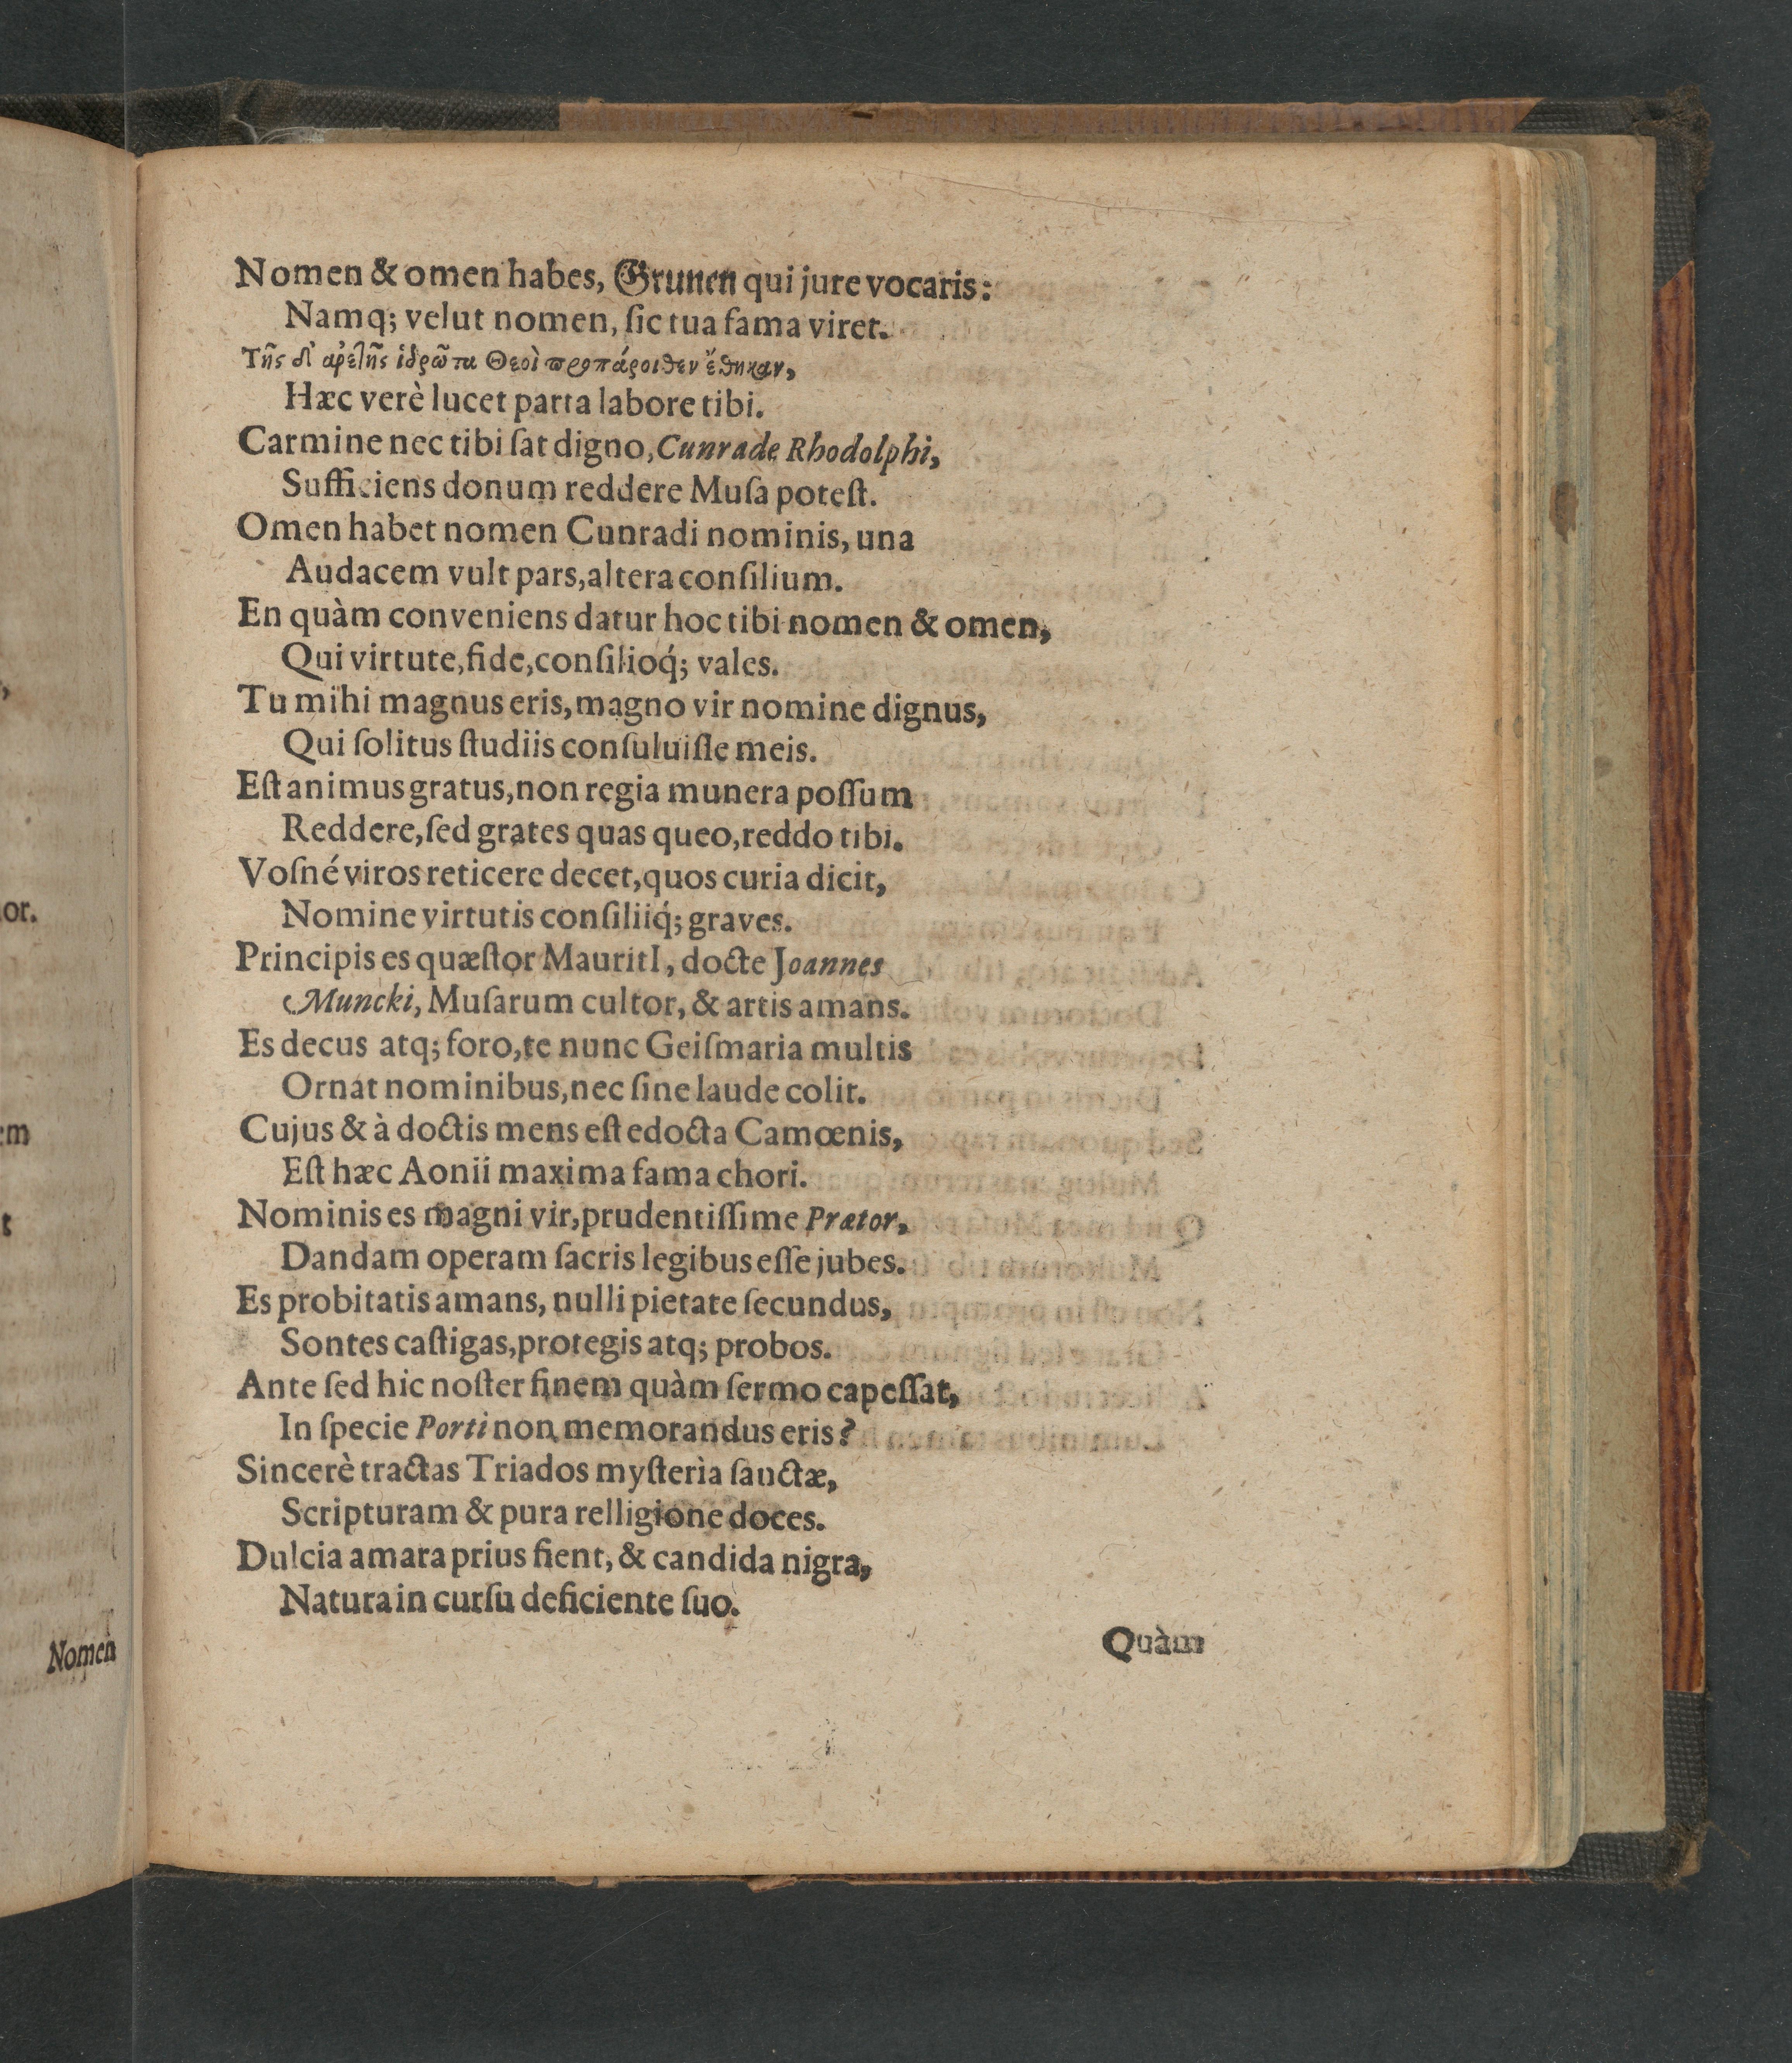 Nomen & omen habes, Grunen qui jure vocaris:
Namq; velut nomen, ſic tua fama viret.
Τῆς δ' ἀρετῆς ἱδρῶτα Θεοὶ προπάροιθεν ἔθηκαν,
Hæc verè lucet parta labore tibi.
Carmine nec tibi ſat digno, Cunrade Rhodolphi,
Sufficiens donum reddere Muſa poteſt.
Omen habet nomen Cunradi nominis, una
Audacem vult pars, altera conſilium.
En quàm conveniens datur hoc tibi nomen & omen,
Qui virtute, fide, conſilioq́; vales.
Tu mihi magnus eris, magno vir nomine dignus,
Qui ſolitus ſtudiis conſuluiſſe meis.
Eſt animus gratus, non regia munera poſſum
Reddere, ſed grates quas queo, reddo tibi.
Voſné viros reticere decet, quos curia dicit,
Nomine virtutis conſiliiq́; graves.
Principis es quæſtor MauritI, docte Joannes
Muncki, Muſarum cultor, & artis amans.
Es decus atq; foro, te nunc Geiſmaria multis
Ornat nominibus, nec ſine laude colit.
Cujus & à doctis mens eſt edocta Camœnis,
Eſt hæc Aonii maxima fama chori.
Nominis es magni vir, prudentiſſime Prætor,
Dandam operam ſacris legibus eſſe jubes.
Es probitatis amans, nulli pietate ſecundus,
Sontes caſtigas, protegis atq; probos.
Ante ſed hic noſter finem quàm ſermo capeſſat,
In ſpecie Porti non memorandus eris?
Sincerè tractas Triados myſteria ſanctæ,
Scripturam & pura relligione doces.
Dulcia amara prius fient, & candida nigra,
Natura in curſu deficiente ſuo.
Quàm
or.
em
t
Nomen